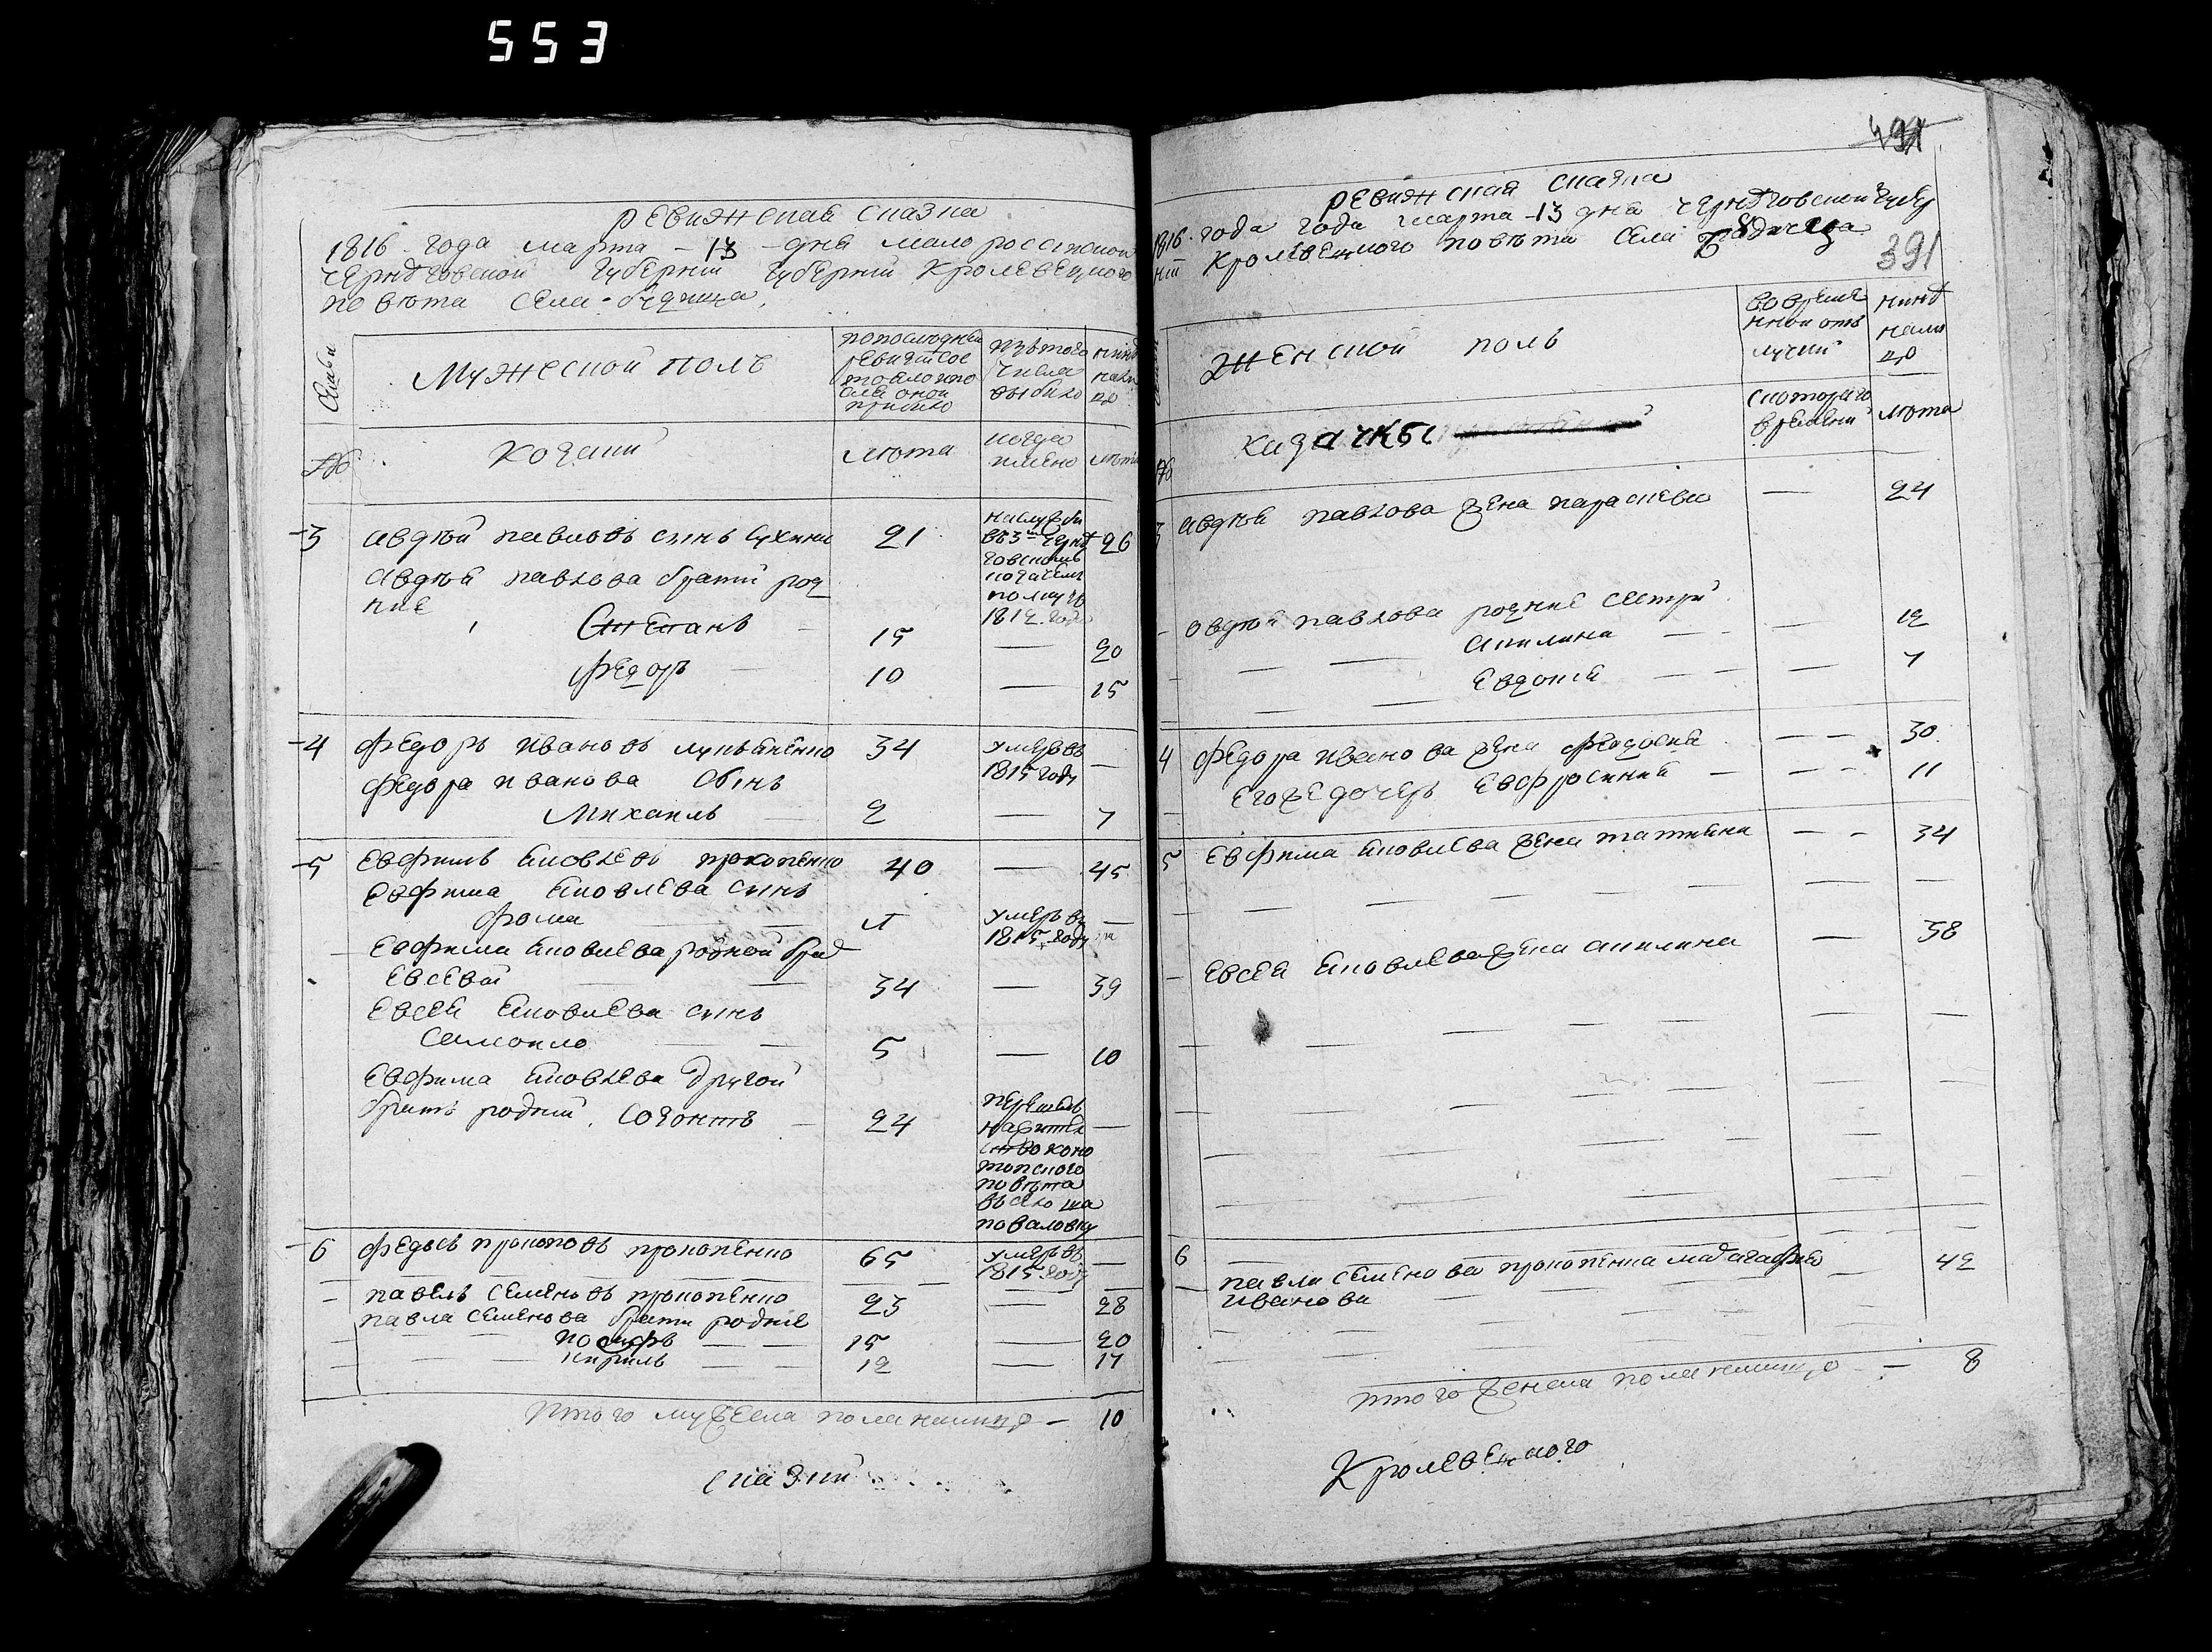 553
ревижская сказка
1816 года марта 13 дня малороссийской
черниговской губернии губернии Кролевецкого
повета села Будища
Семьи
Мужеской полъ
по последней
ревизии сос
тояло и по
сле оной
прибило
изътого
числа
выбило
ныне
на ли
цо
№
Козаки
лета
когда
имено
лета
3 авдей павловъ сынъ Сухина 21
на службе
въ 3м черни
говскомъ
козачемъ
полку съ
1812 году
26
авдея павлова братья род
ние
Степанъ 15 — 20
Федоръ 10 — 15
4 Федоръ ивановъ лукьяненко 34
умеръ въ
1815 году —
Федора иванова сынъ
Михаилъ 2 — 7
5 Евфимъ яковлевъ прокопенко 40 — 45
Евфима яковлева сынъ
фома
умеръ въ
1815 году —
Евфима яковлева родной брат
Евсевей 34 — 39
Евсея яковлева сынъ
Самоило 5 — 10
Евфима яковлева другой
братъ родний Созонтъ 24
перешелъ
на жител
ство коно
топского
повета
въ село ша
поваловку
—
6 Федосъ прокоповъ прокопенко 65
умеръ въ
1815 году —
павелъ семеновъ прокопенко 23 — 28
павла семенова братья родние
15 — 20
кирилъ 12 — 17
итого мужеска пола налицо — 10
сказки
391
ревижская сказка
1816 года года марта 13 дня черниговской губер
нии Кролевецкого повета села Будища
391
Женской полъ
во време
нной отъ
лучки
ныне
нали
цо
№
козачкы
с которого
времени
лета
3 авдея павлова жена параскева — 24
авдея павлова родние сестри
акилина — 12
Евдокия — 7
4 Федора иванова жена феодосия — 30
его же дочерь Евфросиния — 11
5 Евфима яковлева жена татияна — 34
Евсея яковлева жена акилина — 38
6 павла семенова прокопенка мать агафия — 42
иванова
итого женска пола налицо — 8
Кролевецкого